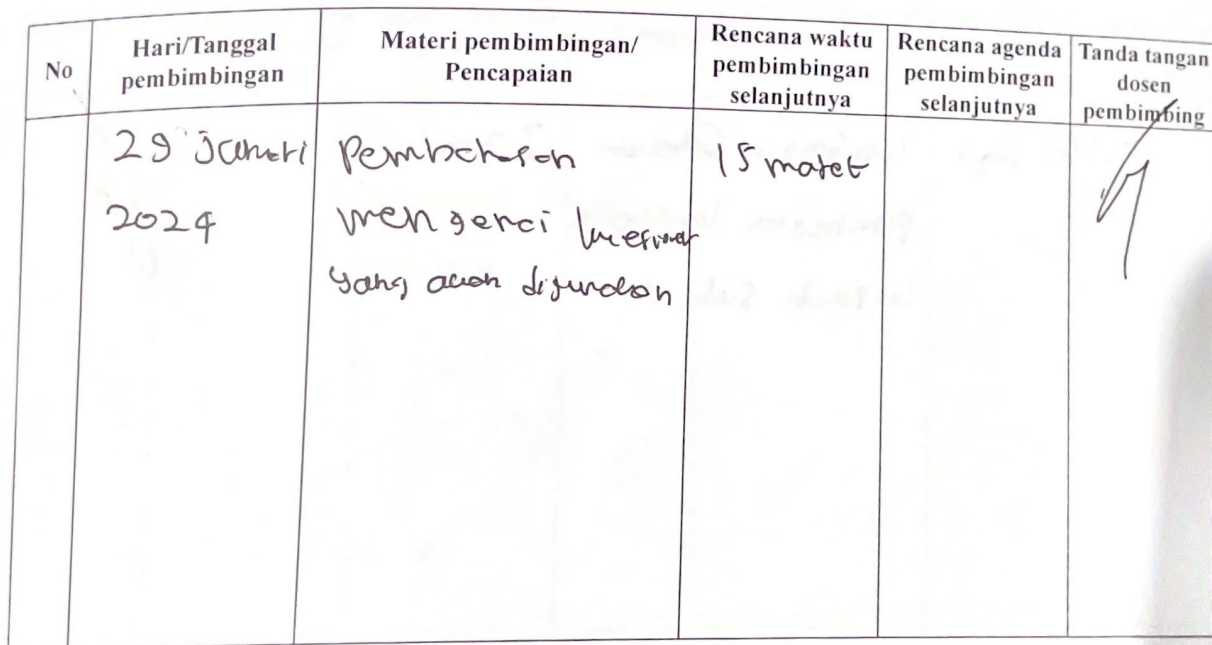 No
Hari/Tanggal
pembimbingan
Materi pembimbingan/
Pencapaian
Rencana waktu
pembimbingan
selanjutnya
Rencana agenda
pembimbingan
selanjutnya
Tanda tangan
dosen
pembimbing
29 Januari
2024
Pembahasan
mengenai
yang akan digunakan
15 maret